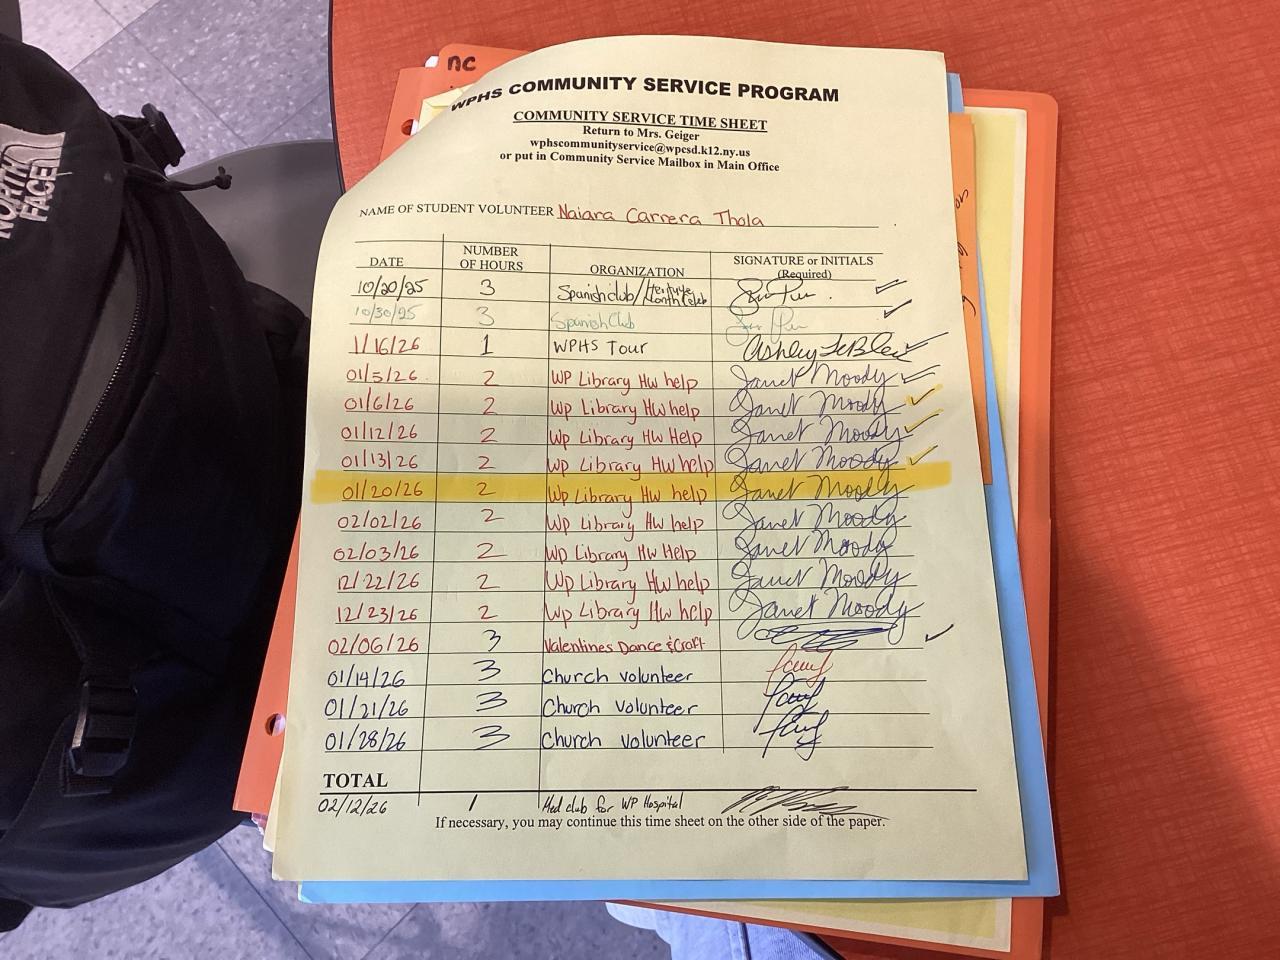 NORTH
FACE
nc
WPHS COMMUNITY SERVICE PROGRAM
COMMUNITY SERVICE TIME SHEET
Return to Mrs. Geiger
wphscommunityservice@wpcsd.k12.ny.us
or put in Community Service Mailbox in Main Office
NAME OF STUDENT VOLUNTEER Naiara Carrera Thola
DATE NUMBER OF HOURS ORGANIZATION SIGNATURE or INITIALS (Required)
10/20/25 3 Spanish club/Heritage Month Celeb
10/30/25 3 Spanish Club
1/16/26 1 WPHS Tour Ashley LeBlanc
01/5/26 2 WP Library Hw help Janet Moody
01/6/26 2 Wp Library Hw help Janet Moody
01/12/26 2 Wp Library Hw Help Janet Moody
01/13/26 2 Wp Library Hw help Janet Moody
01/20/26 2 Wp Library Hw help Janet Moody
02/02/26 2 Wp Library Hw help Janet Moody
02/03/26 2 Wp Library Hw Help Janet Moody
12/22/26 2 Wp Library Hw help Janet Moody
12/23/26 2 Wp Library Hw help Janet Moody
02/06/26 3 Valentines Dance & Craft
01/14/26 3 Church volunteer
01/21/26 3 Church volunteer
01/28/26 3 Church volunteer
TOTAL
02/12/26 1 Med club for WP Hospital
If necessary, you may continue this time sheet on the other side of the paper.